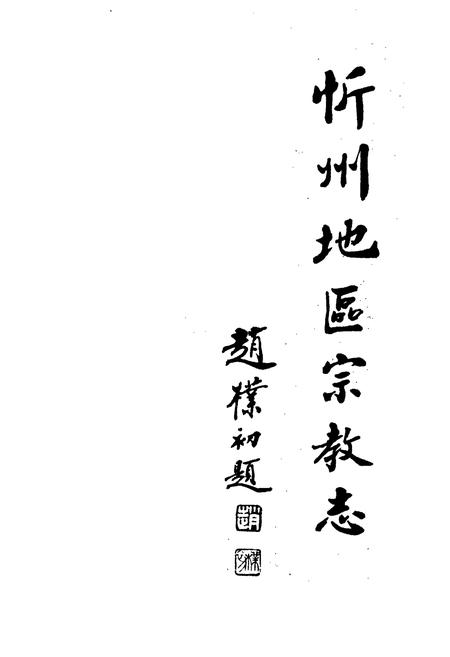 忻州地區宗教志
趙樸初題
趙
樸初